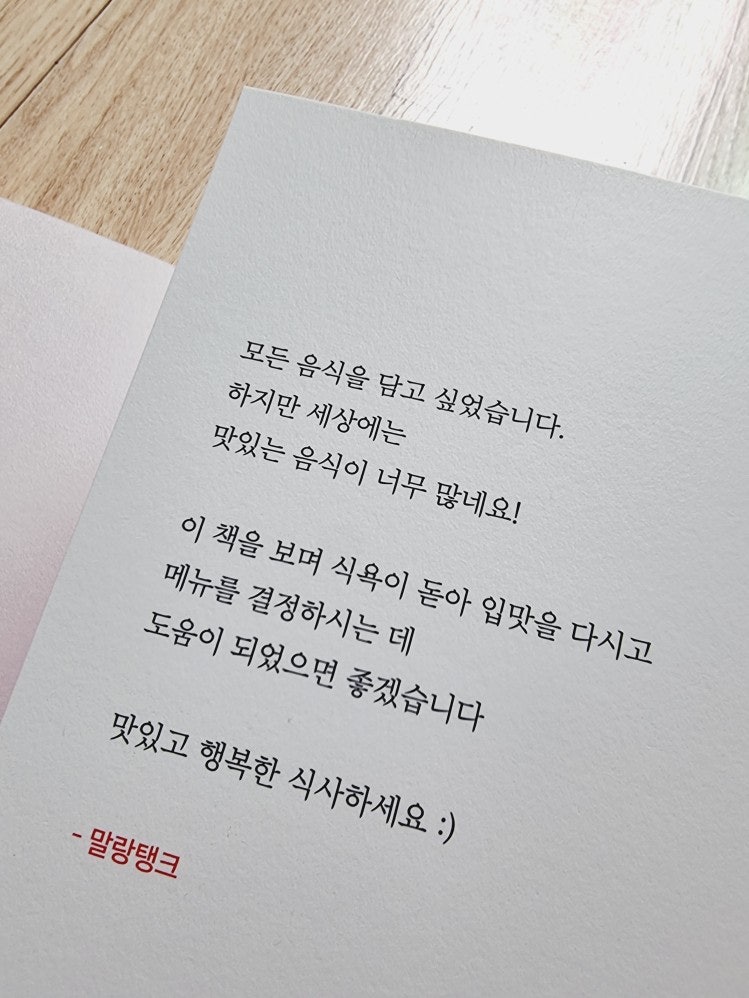 모든 음식을 담고 싶었습니다.
하지만 세상에는
맛있는 음식이 너무 많네요!
이 책을 보며 식욕이 돋아 입맛을 다시고
메뉴를 결정하시는 데
도움이 되었으면 좋겠습니다
맛있고 행복한 식사하세요 :)
- 말랑탱크